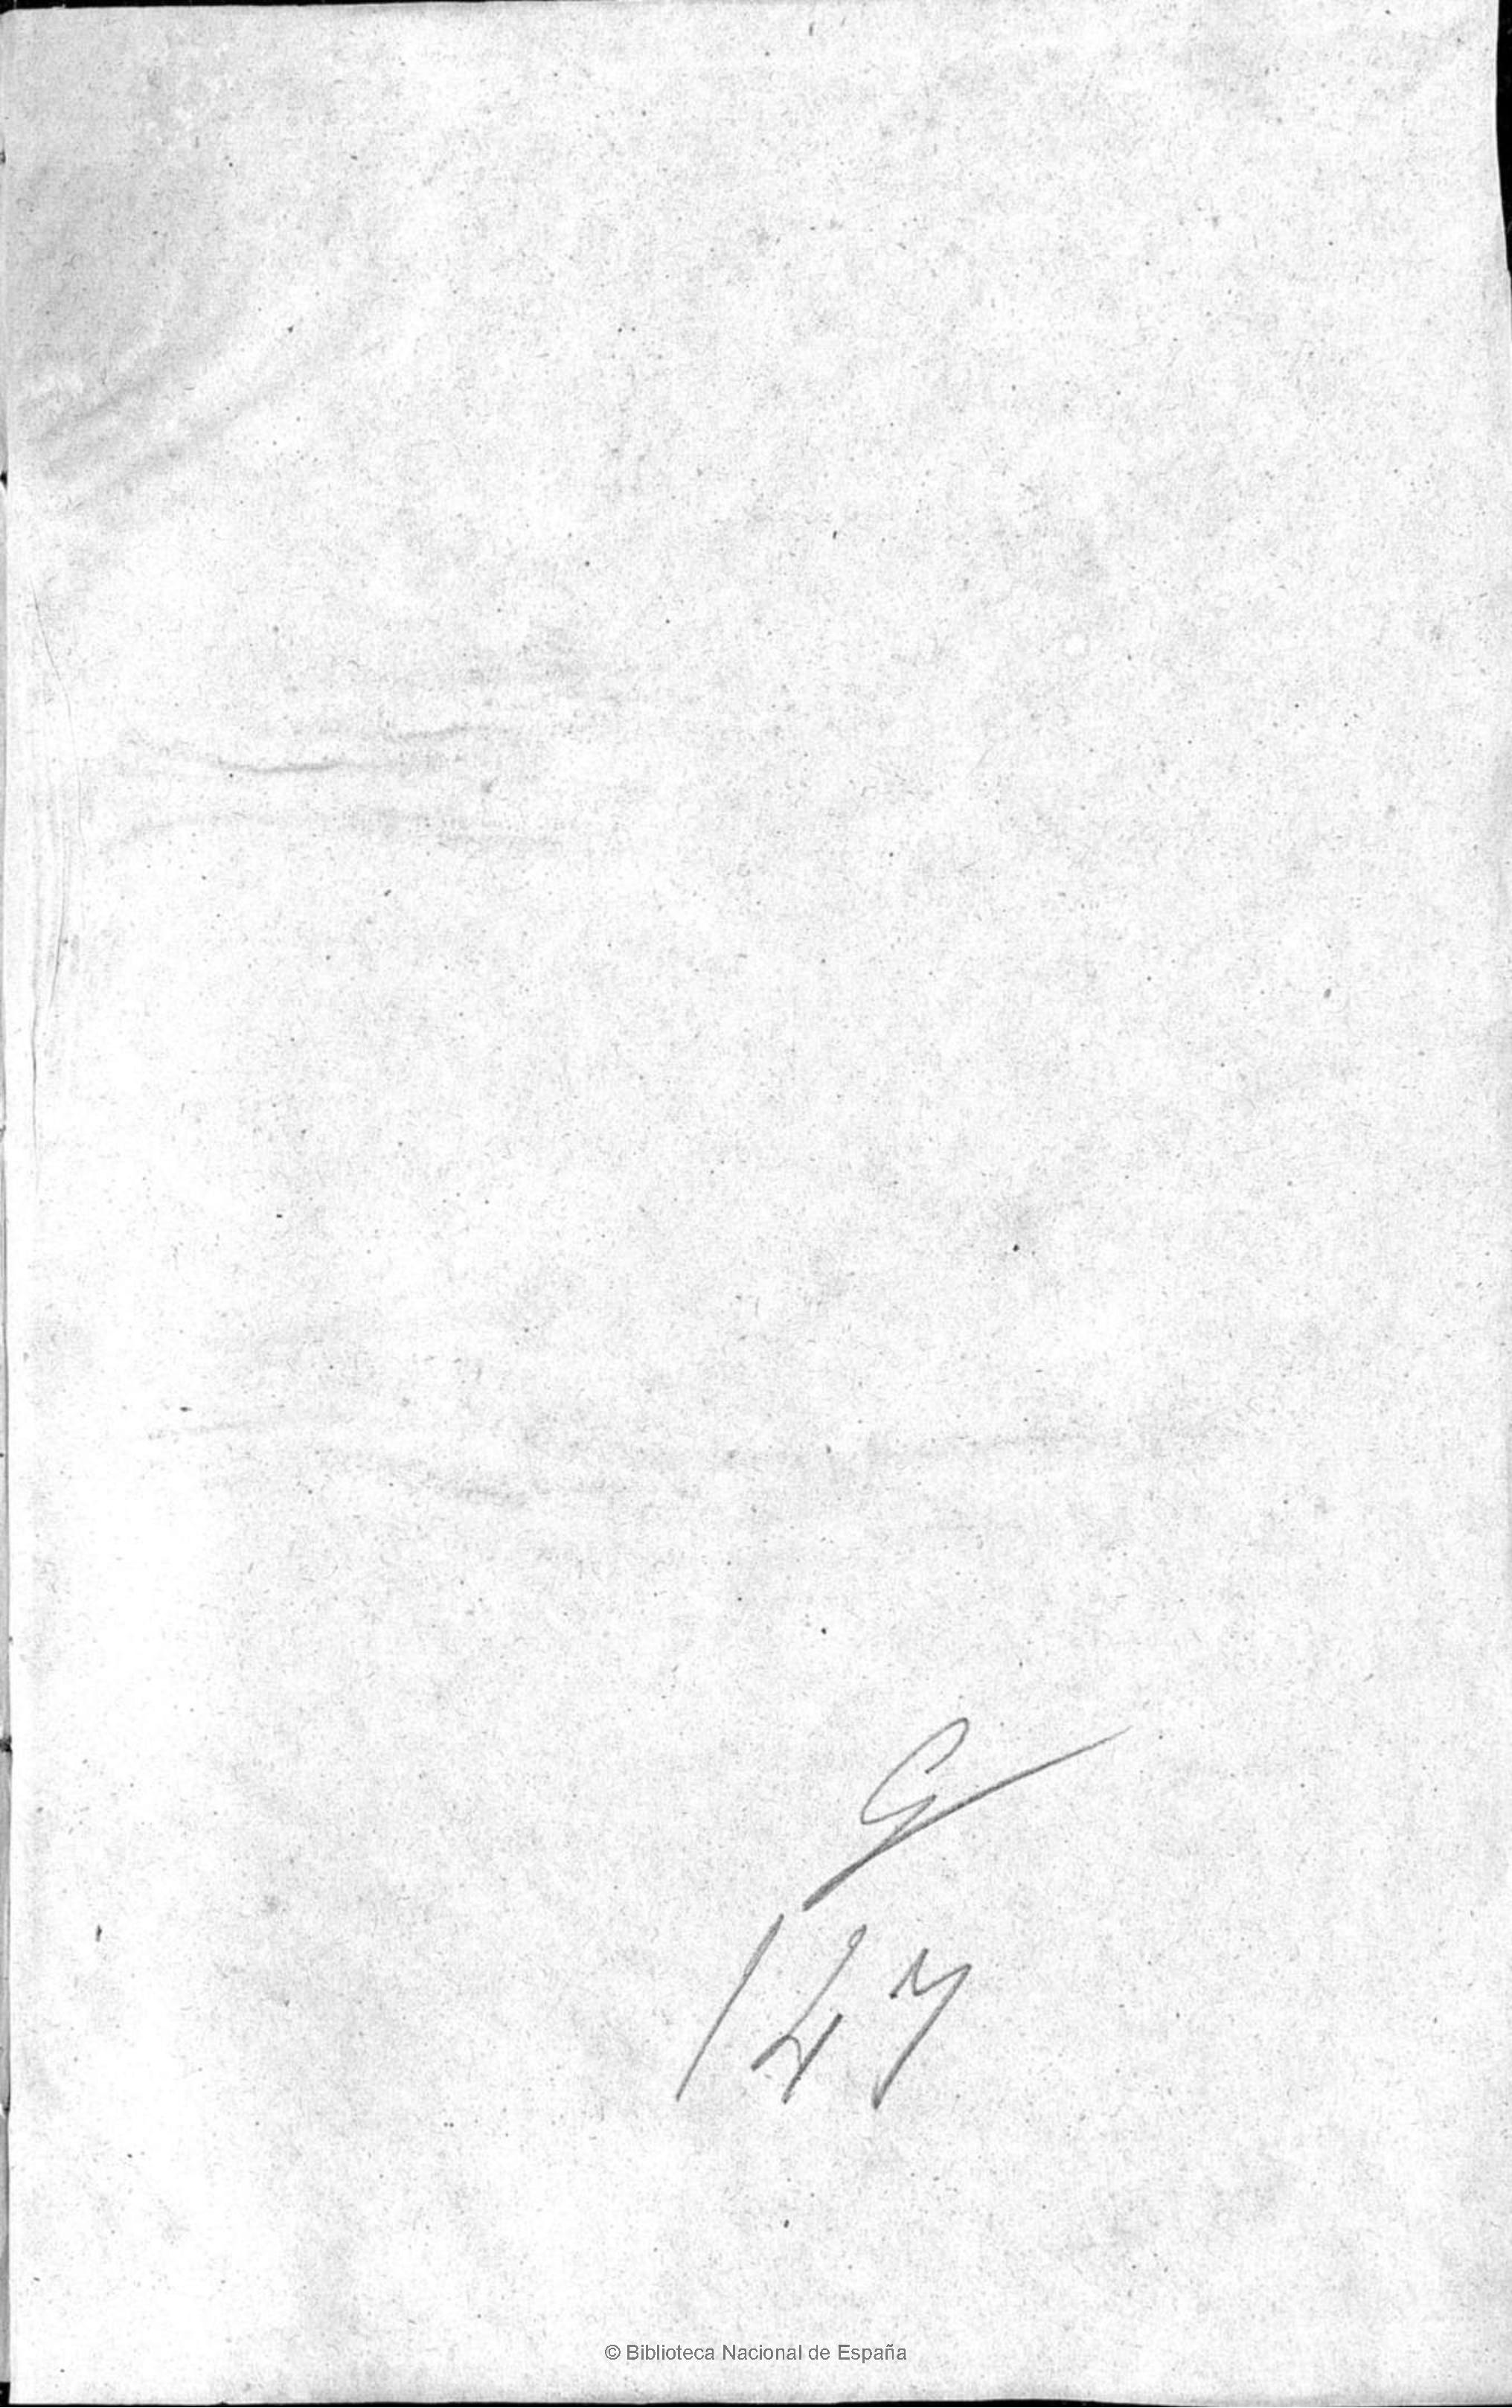 G
147
© Biblioteca Nacional de España